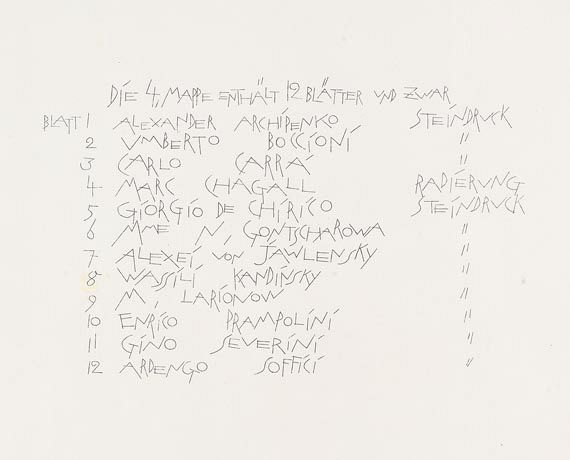 DIE 4. MAPPE ENTHÄLT 12 BLÄTTER VND ZWAR
BLATT 1 ALEXANDER ARCHIPENKO STEINDRUCK
2 VMBERTO BOCCIONI "
3 CARLO CARRÀ "
4 MARC CHAGALL RADIERUNG
5 GIORGIO DE CHIRICO STEINDRUCK
6 MME N. GONTSCHAROWA "
7 ALEXEI VON JAWLENSKY "
8 WASSILI KANDINSKY "
9 M. LARIONOW "
10 ENRICO PRAMPOLINI "
11 GINO SEVERINI "
12 ARDENGO SOFFICI "